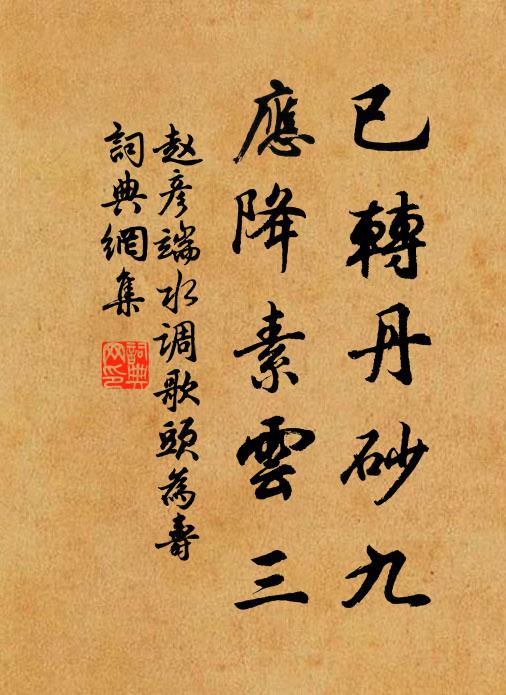 已轉丹砂九
應降素雲三
赵彦端水调歌頭為壽
詞典網集
詞典網印